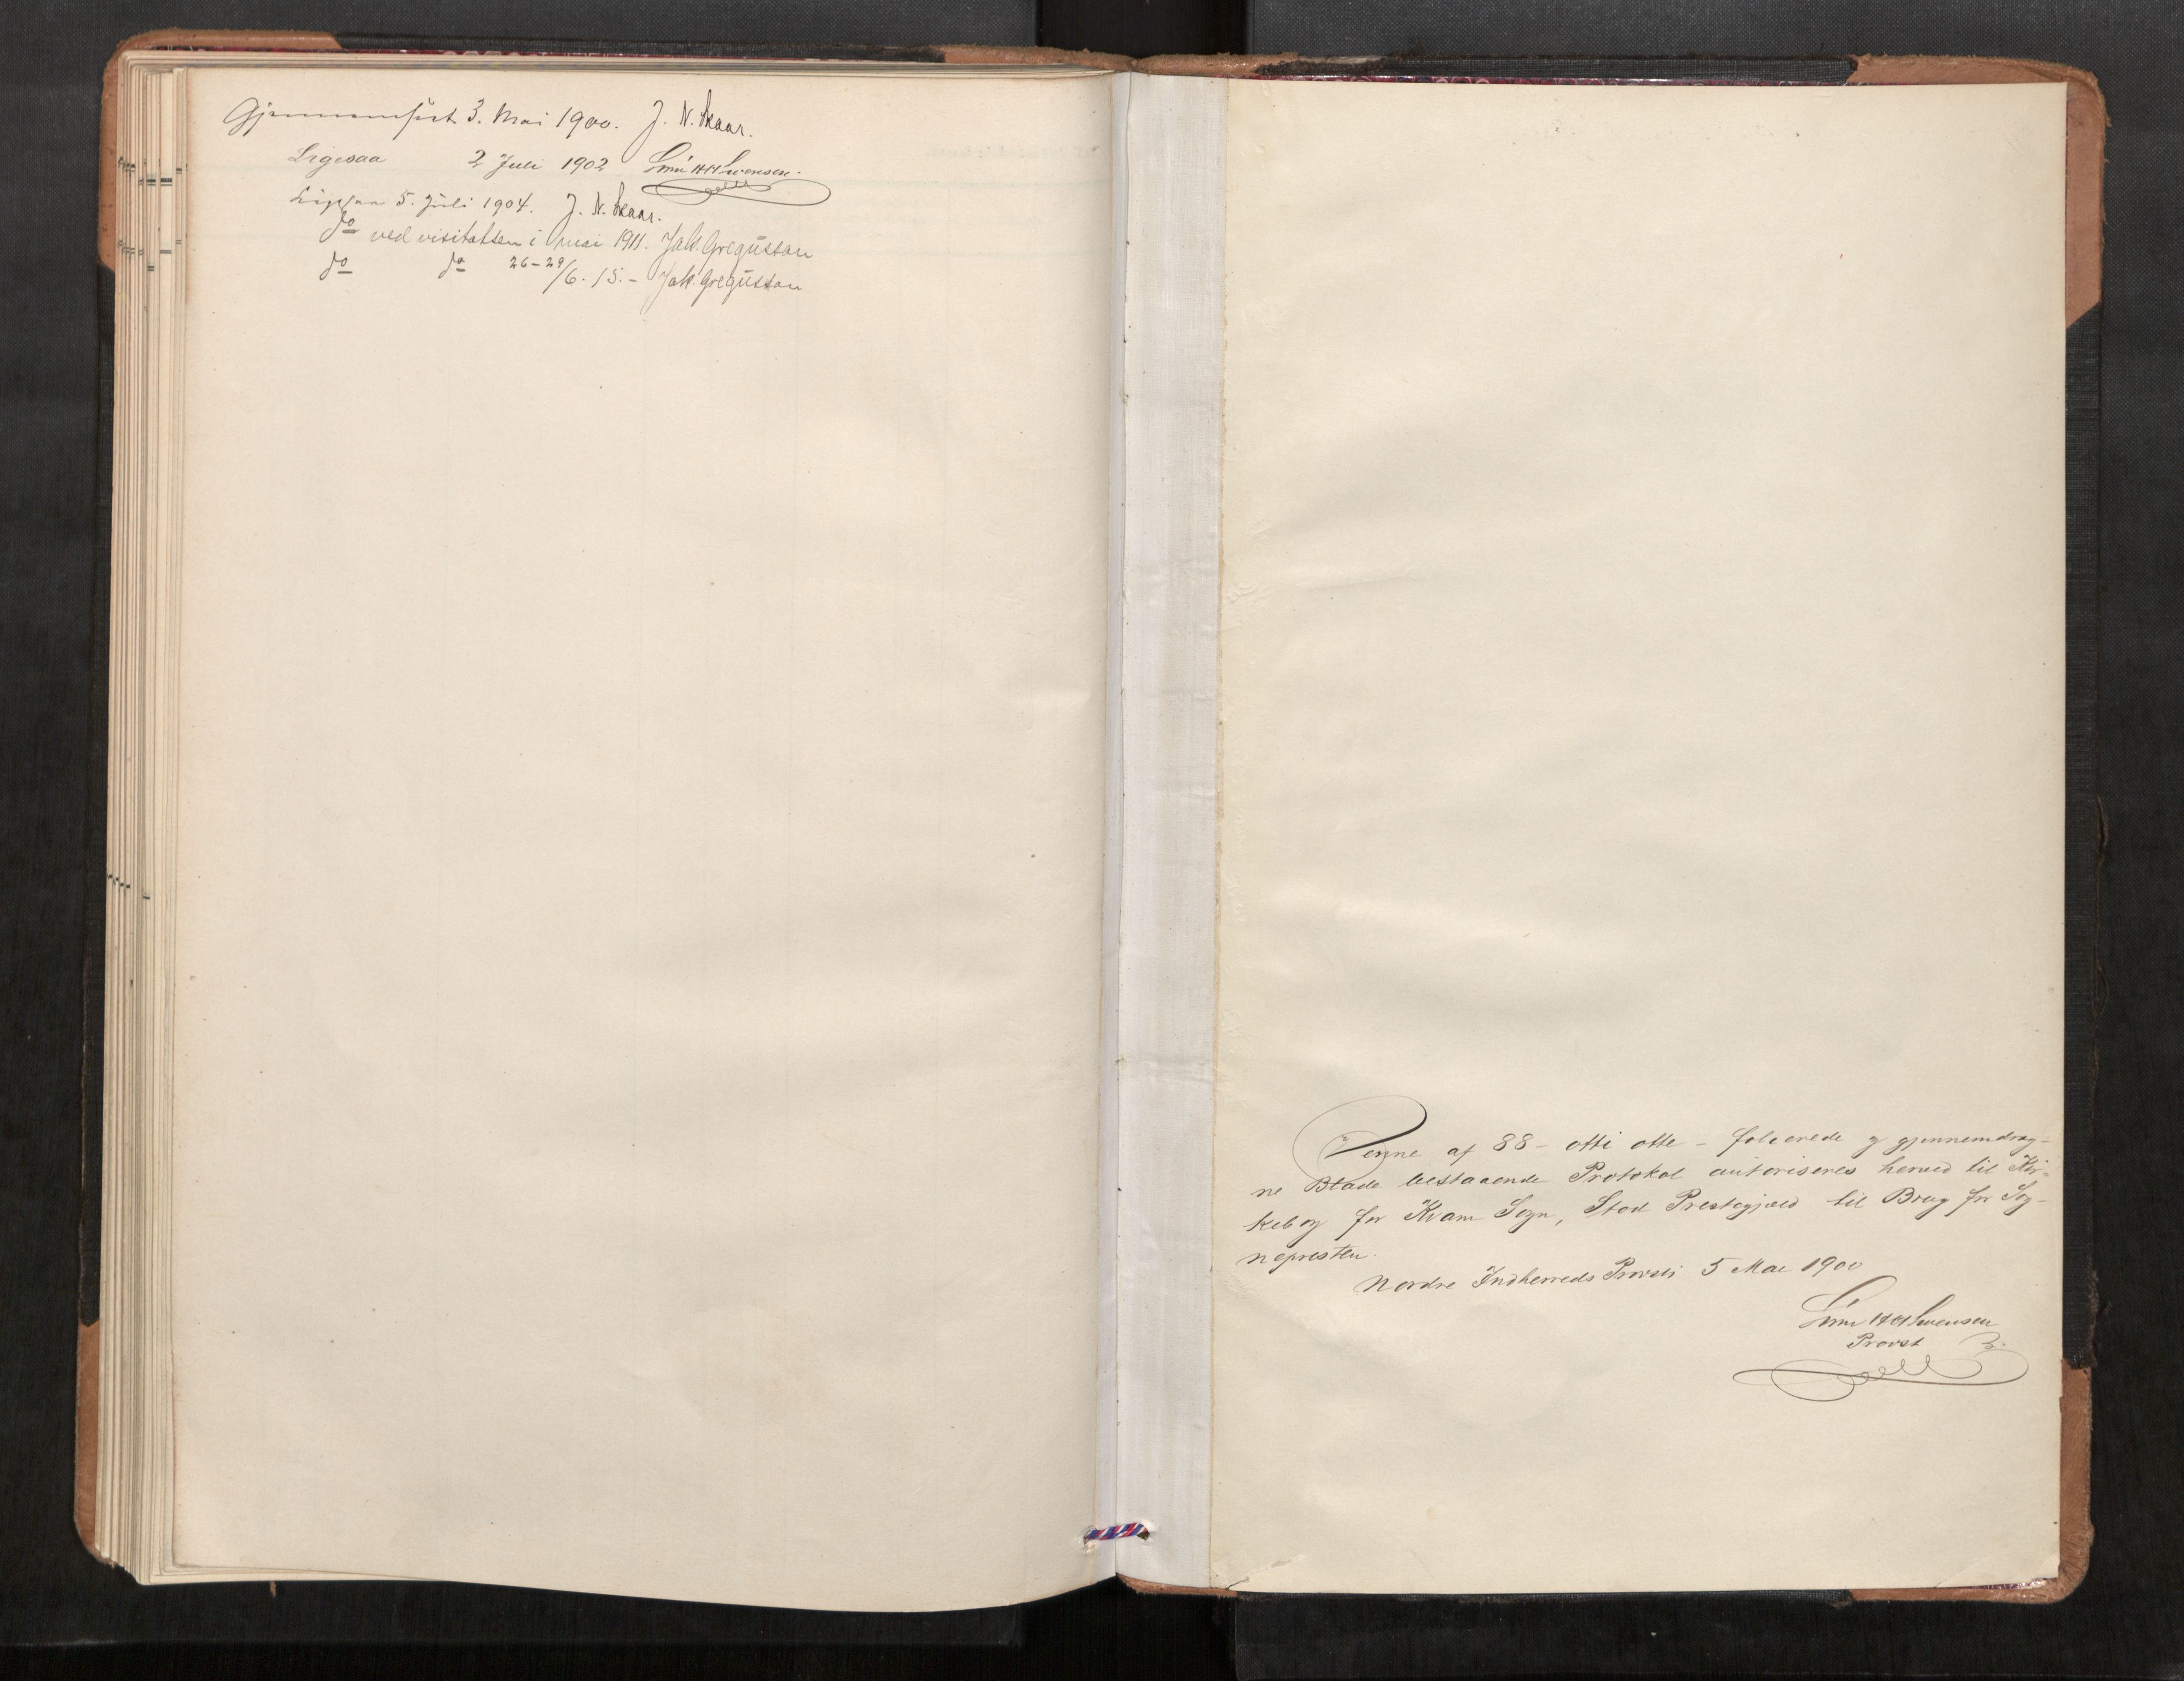 Gjennemseet 3. Mai 1900. J. N. Skaar.
Ligesaa 2 Juli 1902
Ligesaa 5. Juli 1904. J. N. Skaar.
do ved visitatsen i mai 1911. Jak. Gregusson
do do 26-29/6. 15.- Jak. Gregusson
Denne af 88 - otti otte - folierede og gjennemdrag-
ne Blade bestaaende Protokol autoriseres herved til Kir-
kebog for Kvam Sogn, Stod Prestegjeld til Brug for Sog-
nepresten.
Nordre Indherreds Provsti 5 Mai 1900
Provst